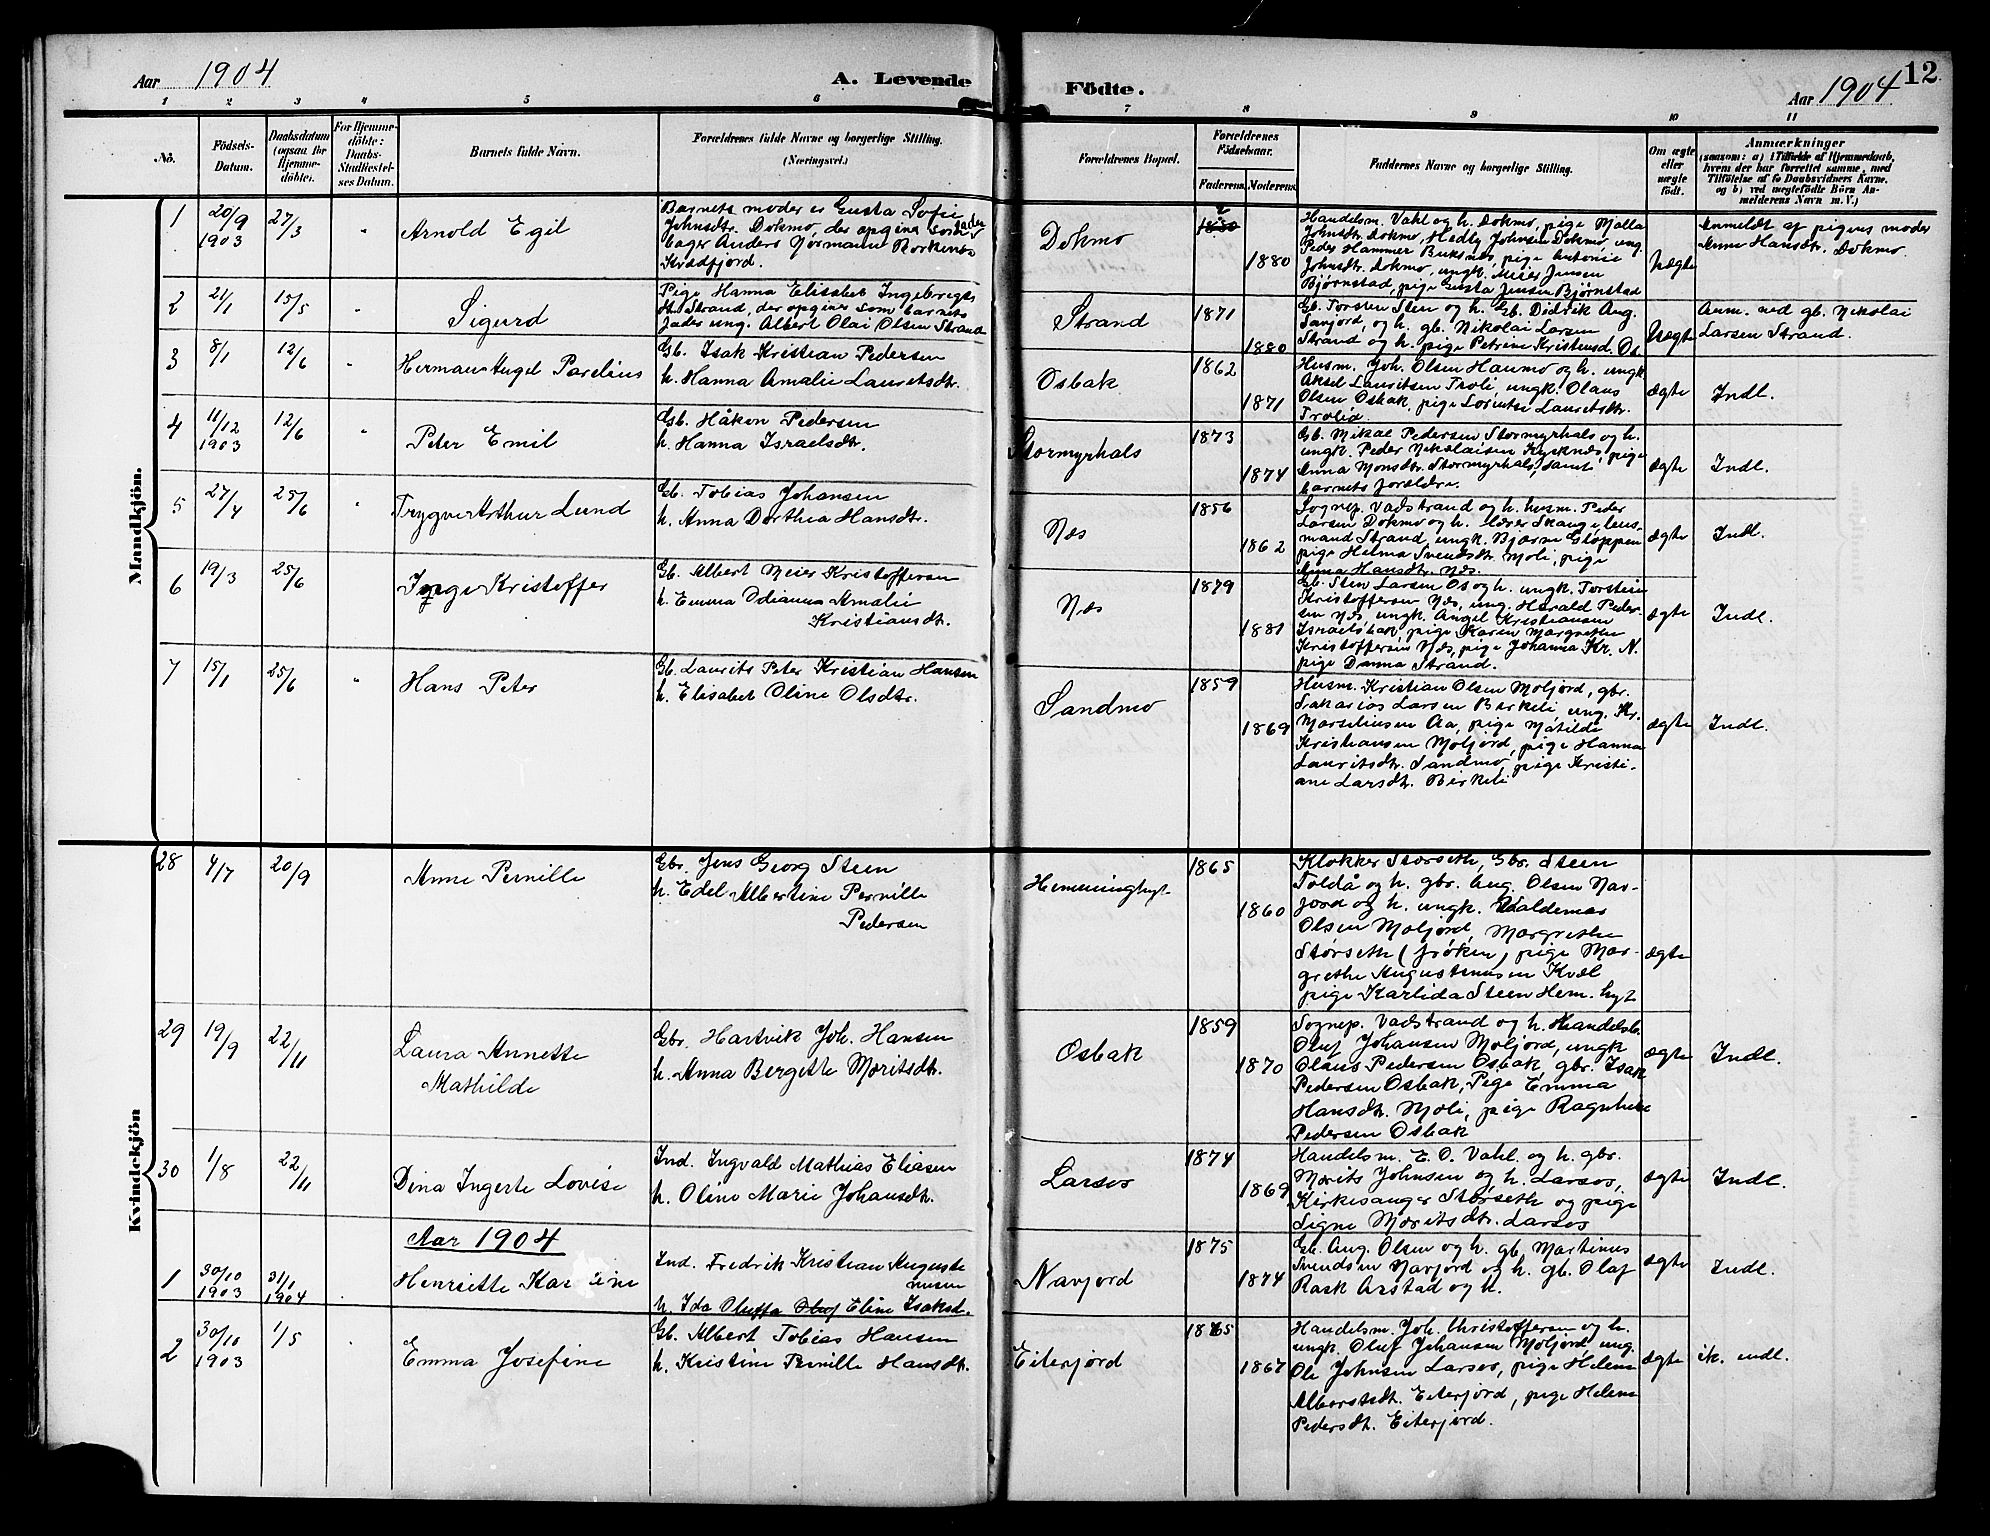 Aar 1904
A. Levende
Födte.
Aar 1904
12
1 2 3 4 5 6 7 8 9 10 11
No.
Födsels-
Datum.
Daabsdatum
(ogsaa for
Hjemme-
döbte).
For Hjemme-
döbte:
Daabs-
Stadfæstel-
ses Datum.
Barnets fulde Navn.
Forældrenes fulde Navne og borgerlige Stilling.
(Næringsvei.)
Forældrenes Bopæl.
Forældrenes
Födselsaar.
Faderens.
Moderens.
Faddernes Navne og borgerlige Stilling.
Om ægte
eller
uægte
födt.
Anmærkninger
(saasom: a) i Tilfælde af Hjemmedaab,
hvem der har forrettet samme, med
Tilföielse af to Daabsvidners Navne,
og b) ved uægtefödte Börn An-
melderens Navn m. V.)
Mandkjön.
1
20/9
1903
27/3
Arnold Egil
Barnets moder er Gusta Sofie
Johnsdtr. Dokmo, der opgiver som fader
Anders Normann
Kvædfjord.
Dokmo
1880
Handelsm. Vahl og h. Dokmo, pige Malla
Johnsdtr. Dokmo, Hedly Johnsen Dokmo, ung.
Peder Hammer Buksnes, pige Antonie
Johnsdtr. Dokmo, ungk. Jensen
Bjørnstad, pige Gusta Jensen Bjørnstad
Uægte
Anmeldt af pigens moder
Anne Hansdtr. Dokmo.
2
21/1
15/5
"
Sigurd
Pige Hanna Elisabet Ingebrigts
dtr Strand, der opgiver som barnets
fader ung. Albert Olai Olsen Strand
Strand
1871
1880
Gb. Torsten Sten og h. Gb. Didrik Aug.
Navjord, og h. gb. Nikolai Larsen
Strand og h. pige Petrine Kristensd. Os.
Uægte
Anm. ved gb. Nikolai
Larsen Strand.
3
8/1
12/6
"
Herman Angel Parelius
Gb. Isak Kristian Pedersen
h. Hanna Amalie Lauritsdtr.
Osbak
1862
1871
Husm. Joh. Olsen Haumo og h. ungk.
Aksel Lauritsen Troli, ungk. Olaus
Olsen Osbak, pige Lorentse Lauritsdtr.
Trolid.
ægte
Indl.
4
11/12
1903
12/6
"
Peter Emil
Gb. Håkon Pedersen
h. Hanna Israelsdtr.
Stormyrhals
1873
1874
Gb. Mikal Pedersen Stormyrhals og h.
ungk. Peder Nikolaisen Kysknæs, pige
Anna Monsdtr. Stormyrhals, samt
barnets forældre.
ægte
Indl.
5
27/4
25/6
"
Trygve Arthur Lund
Gb. Tobias Johansen
h. Anna Dorthea Hansdtr.
Næs
1856
1862
Sognep. Vadstrand og h. husm. Peder
Larsen Dokmo og h. lærer Skauge, lens-
mand Strand, ungk. Bjarne Gloppen
pige Helma Svendsdtr. Moli, pige
Anna Hansdtr. Næs.
ægte
Indl.
6
19/3
25/6
Inge Kristoffer
Gb. Albert Meier Kristoffersen
h. Emma Odianna Amalie
Kristiansdt.
Næs
1879
1881
Gb. Sten Larsen Os og h. ungk. Torstein
Kristoffersen Næs, ung. Harald Peder-
sen Næs, ungk. Angel Kristiansen
Israelsbak, pige Karen Margrethe
Kristoffersen Næs, pige Johanna Kr. N.
pige Danna Strand.
ægte
Indl.
7
15/1
25/6
"
Hans Peter
Gb. Laurits Peter Kristian Hansen
h. Elisabet Oline Olsdtr.
Sandmo
1859
1869
Husm. Kristian Olsen Moljord, gbr.
Sakarias Larsen Birkeli ung. Kr.
Marseliusen Aa, pige Matilde
Kristiansen Moljord, pige Hanna
Lauritsdtr. Sandmo, pige Kristi-
ane Larsdtr. Birkeli
ægte
Indl.
Kvindekjön
28
4/7
20/9
Anne Pernille
Gbr. Jens Georg Steen
h. Edel Albertine Pernille
Pedersen
Hemminghyt.
1865
1860
Klokker Størseth, Gbr. Steen
Toldå og h. gbr. Aug. Olsen Nav-
jord og h. ungk. Valdemar
Olsen Moljord, Margrethe
Størseth (frøken) pige Mar-
grethe Augustinussen Kvæl
pige Karlida Steen Hem. hyt
ægte
29
19/9
22/11
Laura Annette
Mathilde
Gbr. Hartvik Joh. Hansen
h. Anna Bergette Moritsdtr.
Osbak
1859
1870
Sognep. Vadstrand og h. Handelsb.
Oluf Johansen Moljord, ungk
Olaus Pedersen Osbak, gbr. Isak
Pedersen Osbak, Pige Emma
Hansdtr. Moli, pige Ragnhild
Pedersen Osbak
ægte
Indl.
30
1/8
22/11
Dina Ingerte Lovise
Ind. Ingvald Mathias Eliasen
h. Oline Marie Johansdtr.
Larsos
1874
1869
Handelsm. E. O. Vahl og h. gbr.
Morits Johnsen og h. Larsos,
Kirkesanger Størseth og pige
Signe Moritsdtr. Larsos
ægte
Indl.
Aar 1904
1
30/10
1903
31/1
1904
Henriette
Ind. Fredrik Kristian Auguste
nusen
h. Ida Oluffa Oluf Eline Isaksd.
Navjord
1875
1874
Gb. Aug. Olsen og h. gb. Martinus
Svendsen Navjord og h. gb. Olaf
Rask Arstad og h.
ægte
Indl.
2
30/10
1903
1/5
Emma Josefine
Gb. Albert Tobias Hansen
h. Kristine Pernille Hansdtr.
Eiterjord
1865
1867
Handelsm. Joh. Christoffersen og h.
ungk. Oluf Johansen Moljord, ung.
Ole Johnsen Larsos, pige Helene
Albertsdt. Eiterjord, pige Helene
Pedersdt. Eiterjord.
ægte
ik. indl.